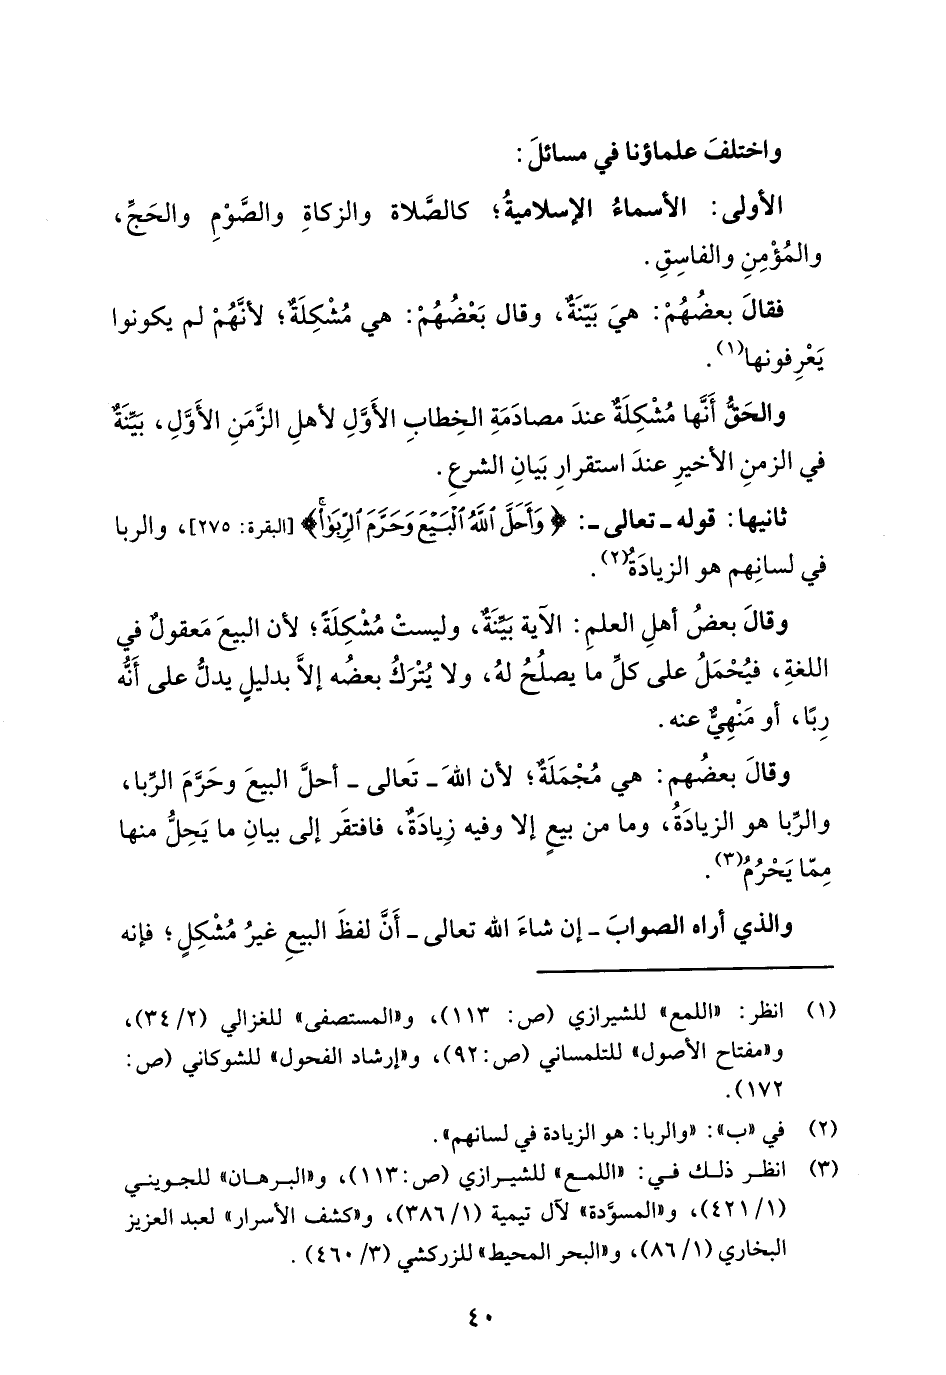 واختلفَ علماؤنا في مسائلَ:
الأولى: الأسماءُ الإسلاميةُ؛ كالصَّلاة والزكاةِ والصَّوْمِ والحَجِّ،
والمُؤْمِنِ والفاسِقِ.
فقالَ بعضُهُمْ: هيَ بَيّنَةٌ، وقال بَعْضُهُمْ: هي مُشْكِلَةٌ؛ لأنَّهُمْ لم يكونوا
يَعْرِفونها(١).
والحَقُّ أَنَّها مُشْكِلَةٌ عندَ مصادَمَةِ الخِطابِ الأوَّلِ لأهلِ الزَّمَنِ الأوَّلِ، بَيِّنَةٌ
في الزمنِ الأخيرِ عندَ استقرارِ بَيانِ الشرعِ.
ثانيها: قوله ـ تعالى ـ: ﴿وَأَحَلَّ ٱللَّهُ ٱلْبَيْعَ وَحَرَّمَ ٱلرِّبَوٰا۟ۚ﴾ [البقرة: ٢٧٥]، والربا
في لسانِهم هو الزيادَةُ(٢).
وقالَ بعضُ أهلِ العلمِ: الآية بَيِّنَةٌ، وليستْ مُشْكِلَةً؛ لأن البيعَ مَعقولٌ في
اللغةِ، فيُحْمَلُ على كلِّ ما يصلُحُ لهُ، ولا يُتْرَكُ بعضُه إلاَّ بدليلٍ يدلُّ على أَنَّهُ
رِبًا، أو مَنْهِيٌّ عنه.
وقالَ بعضُهم: هي مُجْمَلَةٌ؛ لأن اللهَ ـ تَعالى ـ أحلَّ البيعَ وحَرَّمَ الرِّبا،
والرِّبا هو الزيادَةُ، وما من بيعٍ إلا وفيه زِيادَةٌ، فافتقَر إلى بيانِ ما يَحِلُّ منها
مِمّا يَحْرُمُ(٣).
والذي أراه الصوابَ ـ إن شاءَ الله تعالى ـ أَنَّ لفظَ البيعِ غيرُ مُشْكِلٍ؛ فإنه
(١) انظر: «اللمع» للشيرازي (ص: ١١٣)، و«المستصفى» للغزالي (٢/ ٣٤)،
و«مفتاح الأصول» للتلمساني (ص: ٩٢)، و«إرشاد الفحول» للشوكاني (ص:
١٧٢).
(٢) في «ب»: «والربا: هو الزيادة في لسانهم».
(٣) انظر ذلك في: «اللمع» للشيرازي (ص: ١١٣)، و«البرهان» للجويني
(١/ ٤٢١)، و«المسوَّدة» لآل تيمية (١/ ٣٨٦)، و«كشف الأسرار» لعبد العزيز
البخاري (١/ ٨٦)، و«البحر المحيط» للزركشي (٣/ ٤٦٠).
٤٠